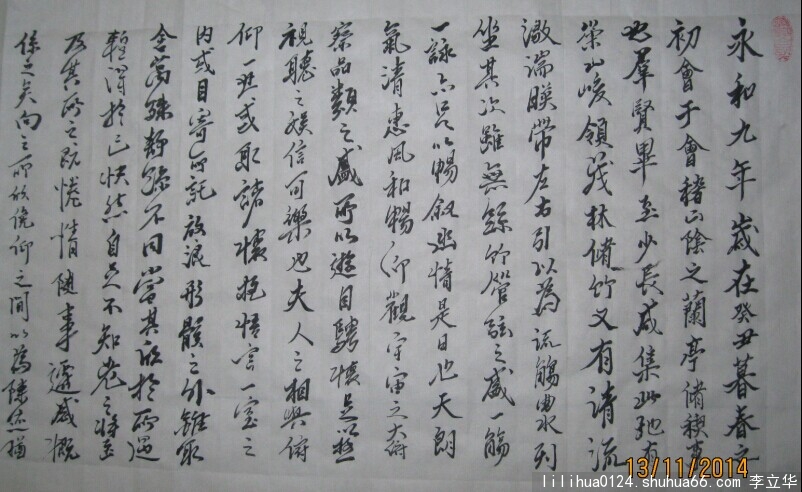 永和九年歲在癸丑暮春之
初會于會稽山陰之蘭亭脩禊事
也羣賢畢至少長咸集此地有
崇山峻領茂林脩竹又有清流
激湍暎帶左右引以為流觴曲水列
坐其次雖無絲竹管弦之盛一觴
一詠亦足以暢叙幽情是日也天朗
氣清惠風和暢仰觀宇宙之大俯
察品類之盛所以遊目騁懷足以極
視聽之娛信可樂也夫人之相與俯
仰一世或取諸懷抱悟言一室之
內或因寄所託放浪形骸之外雖取
舍萬殊靜躁不同當其欣於所遇
蹔得於己快然自足不知老之將至
及其所之既惓情隨事遷感慨
係之矣向之所欣俛仰之間以為陳迹猶
13/11/2014
lilihua0124.shuhua66.com 李立华